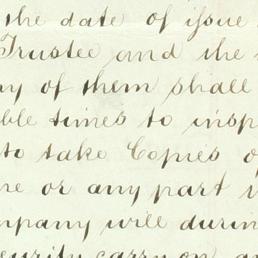 the date of issue
Trustee and the
ny of them shall
ble times to insp
to take Copies o
ne or any part
mpany will durin
ecurity carry on a